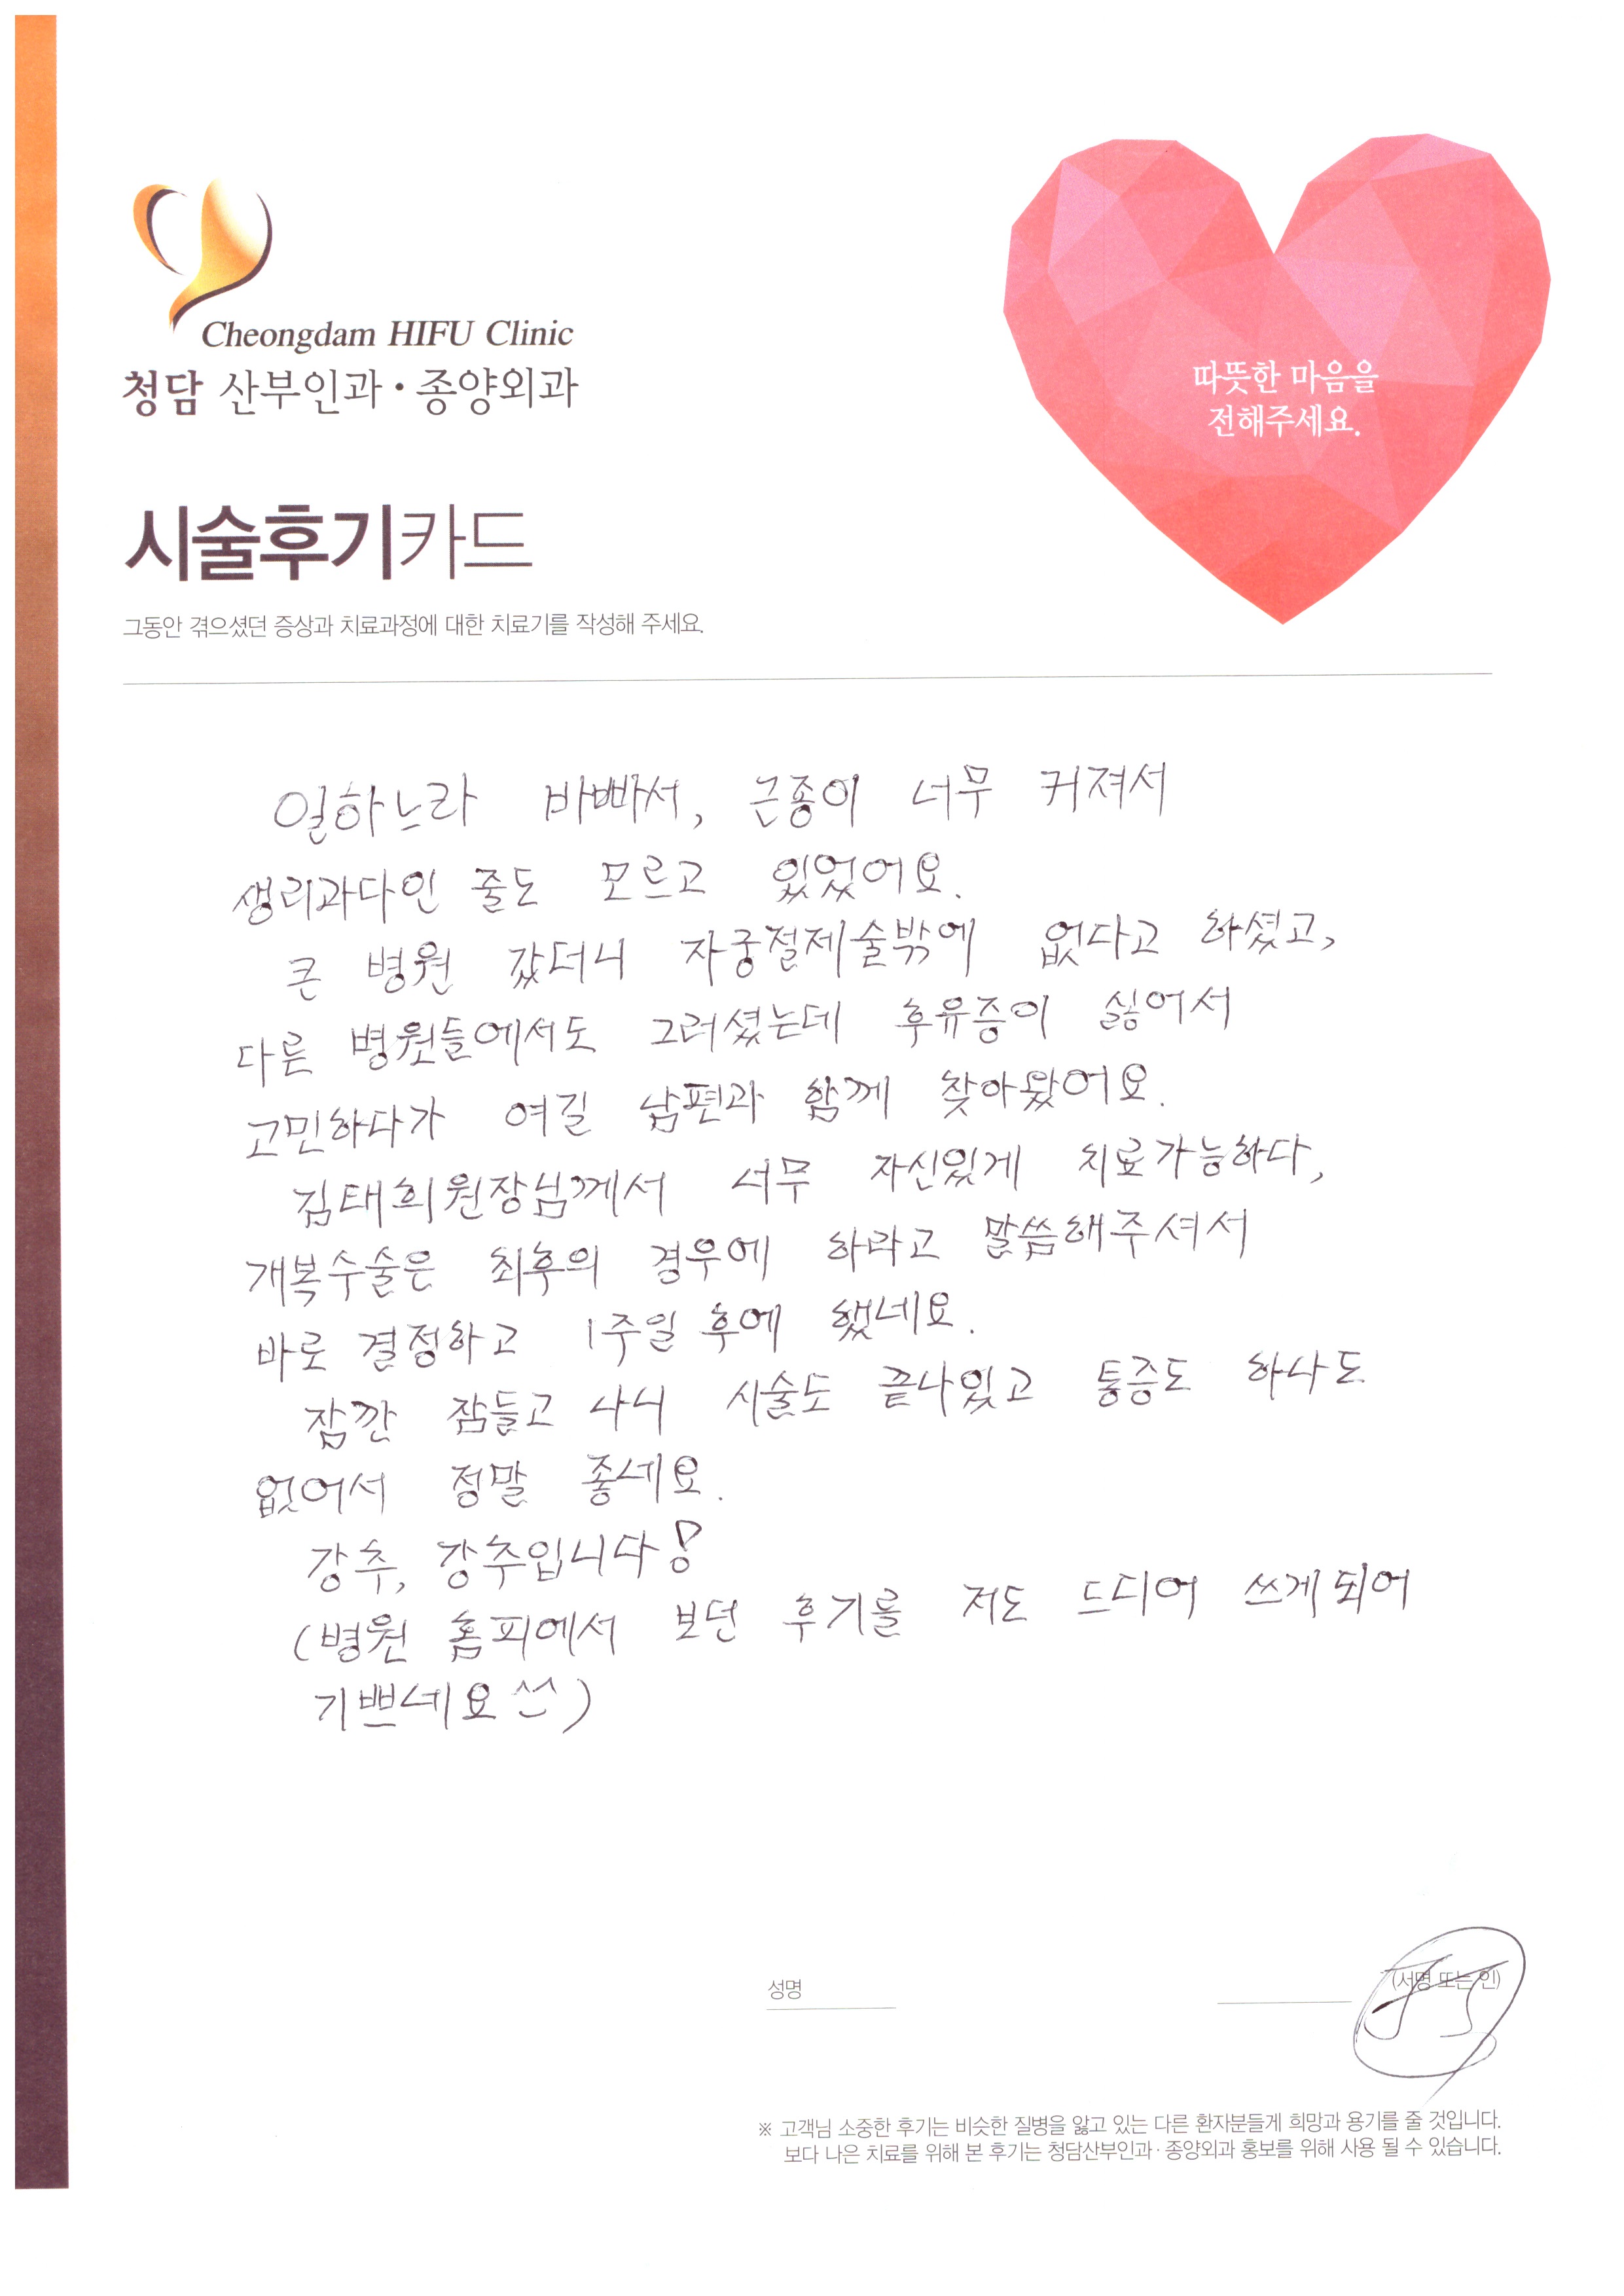 Cheongdam HIFU Clinic
청담 산부인과·종양외과
따뜻한 마음을
전해주세요.
시술후기카드
그동안 겪으셨던 증상과 치료과정에 대한 치료기를 작성해 주세요.
일하느라 바빠서, 근종이 너무 커져서
생리과다인 줄도 모르고 있었어요.
큰 병원 갔더니 자궁절제술밖에 없다고 하셨고,
다른 병원들에서도 그러셨는데 후유증이 싫어서
고민하다가 여길 남편과 함께 찾아왔어요.
김태희원장님께서 너무 자신있게 치료가능하다,
개복수술은 최후의 경우에 하라고 말씀해주셔서
바로 결정하고 1주일 후에 했네요.
잠깐 잠들고 나니 시술도 끝나있고 통증도 하나도
없어서 정말 좋네요.
강추, 강추입니다!
(병원 홈피에서 보던 후기를 저도 드디어 쓰게되어
기쁘네요 ^^)
성명
(서명 또는 인)
※ 고객님 소중한 후기는 비슷한 질병을 앓고 있는 다른 환자분들게 희망과 용기를 줄 것입니다.
보다 나은 치료를 위해 본 후기는 청담산부인과·종양외과 홍보를 위해 사용 될 수 있습니다.